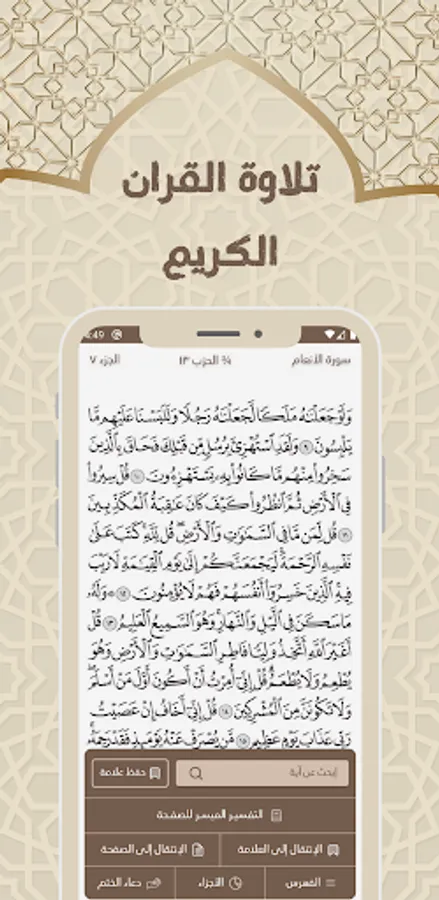 تلاوة القران
الكريم
4:49
سورة الأنعام ¾ الحزب ١٣ الجزء ٧
وَلَوْ جَعَلْنَٰهُ مَلَكًا لَّجَعَلْنَٰهُ رَجُلًا وَلَلَبَسْنَا عَلَيْهِم مَّا
يَلْبِسُونَ ٩ وَلَقَدِ ٱسْتُهْزِئَ بِرُسُلٍ مِّن قَبْلِكَ فَحَاقَ بِٱلَّذِينَ
سَخِرُوا۟ مِنْهُم مَّا كَانُوا۟ بِهِۦ يَسْتَهْزِءُونَ ١٠ قُلْ سِيرُوا۟
فِى ٱلْأَرْضِ ثُمَّ ٱنظُرُوا۟ كَيْفَ كَانَ عَٰقِبَةُ ٱلْمُكَذِّبِينَ
١١ قُل لِّمَن مَّا فِى ٱلسَّمَٰوَٰتِ وَٱلْأَرْضِ ۖ قُل لِّلَّهِ ۚ كَتَبَ عَلَىٰ
نَفْسِهِ ٱلرَّحْمَةَ ۚ لَيَجْمَعَنَّكُمْ إِلَىٰ يَوْمِ ٱلْقِيَٰمَةِ لَا رَيْبَ
فِيهِ ۚ ٱلَّذِينَ خَسِرُوٓا۟ أَنفُسَهُمْ فَهُمْ لَا يُؤْمِنُونَ ١٢ ۞ وَلَهُۥ
مَا سَكَنَ فِى ٱلَّيْلِ وَٱلنَّهَارِ ۚ وَهُوَ ٱلسَّمِيعُ ٱلْعَلِيمُ ١٣ قُلْ
أَغَيْرَ ٱللَّهِ أَتَّخِذُ وَلِيًّا فَاطِرِ ٱلسَّمَٰوَٰتِ وَٱلْأَرْضِ وَهُوَ
يُطْعِمُ وَلَا يُطْعَمُ ۗ قُلْ إِنِّىٓ أُمِرْتُ أَنْ أَكُونَ أَوَّلَ مَنْ أَسْلَمَ ۖ
وَلَا تَكُونَنَّ مِنَ ٱلْمُشْرِكِينَ ١٤ قُلْ إِنِّىٓ أَخَافُ إِنْ عَصَيْتُ
رَبِّى عَذَابَ يَوْمٍ عَظِيمٍ ١٥ مَّن يُصْرَفْ عَنْهُ يَوْمَئِذٍ فَقَدْ رَحِمَهُۥ
إبحث عن آية حفظ علامة
التفسير الميسر للصفحة
الإنتقال إلى العلامة الإنتقال إلى الصفحة
الفهرس الأجزاء دعاء الختم